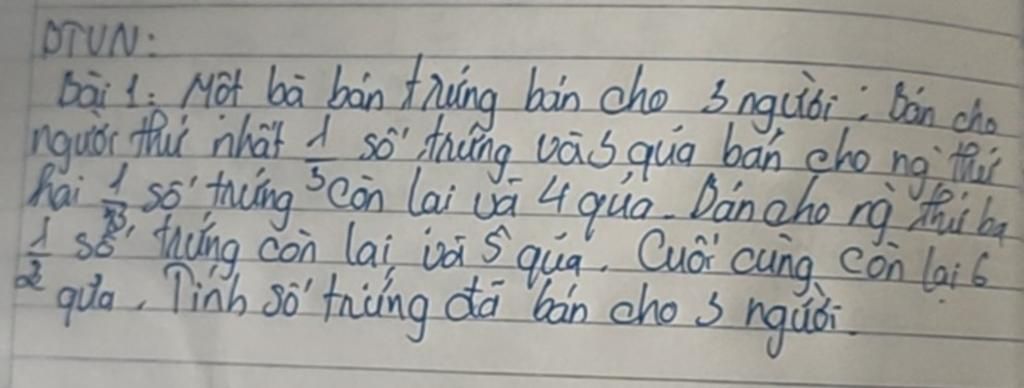 BTVN:
Bài 1: Một bà bán trứng bán cho 3 người: Bán cho
người thứ nhất 1/3 số trứng và 3 quả bán cho ng` thứ
hai 1/3 số trứng còn lại và 4 quả. Bán cho ng` thứ ba
1/2 số trứng còn lại và 5 quả. Cuối cùng còn lại 6
quả. Tính số trứng đã bán cho 3 người.